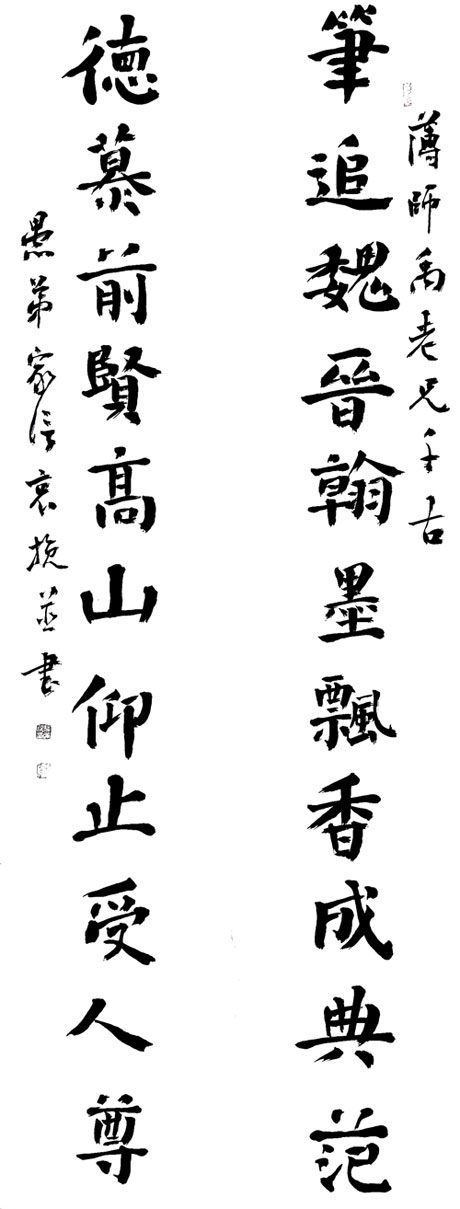 薄師禹老兄千古
筆追魏晉翰墨飄香成典范
德慕前賢高山仰止受人尊
愚弟家信哀挽並書